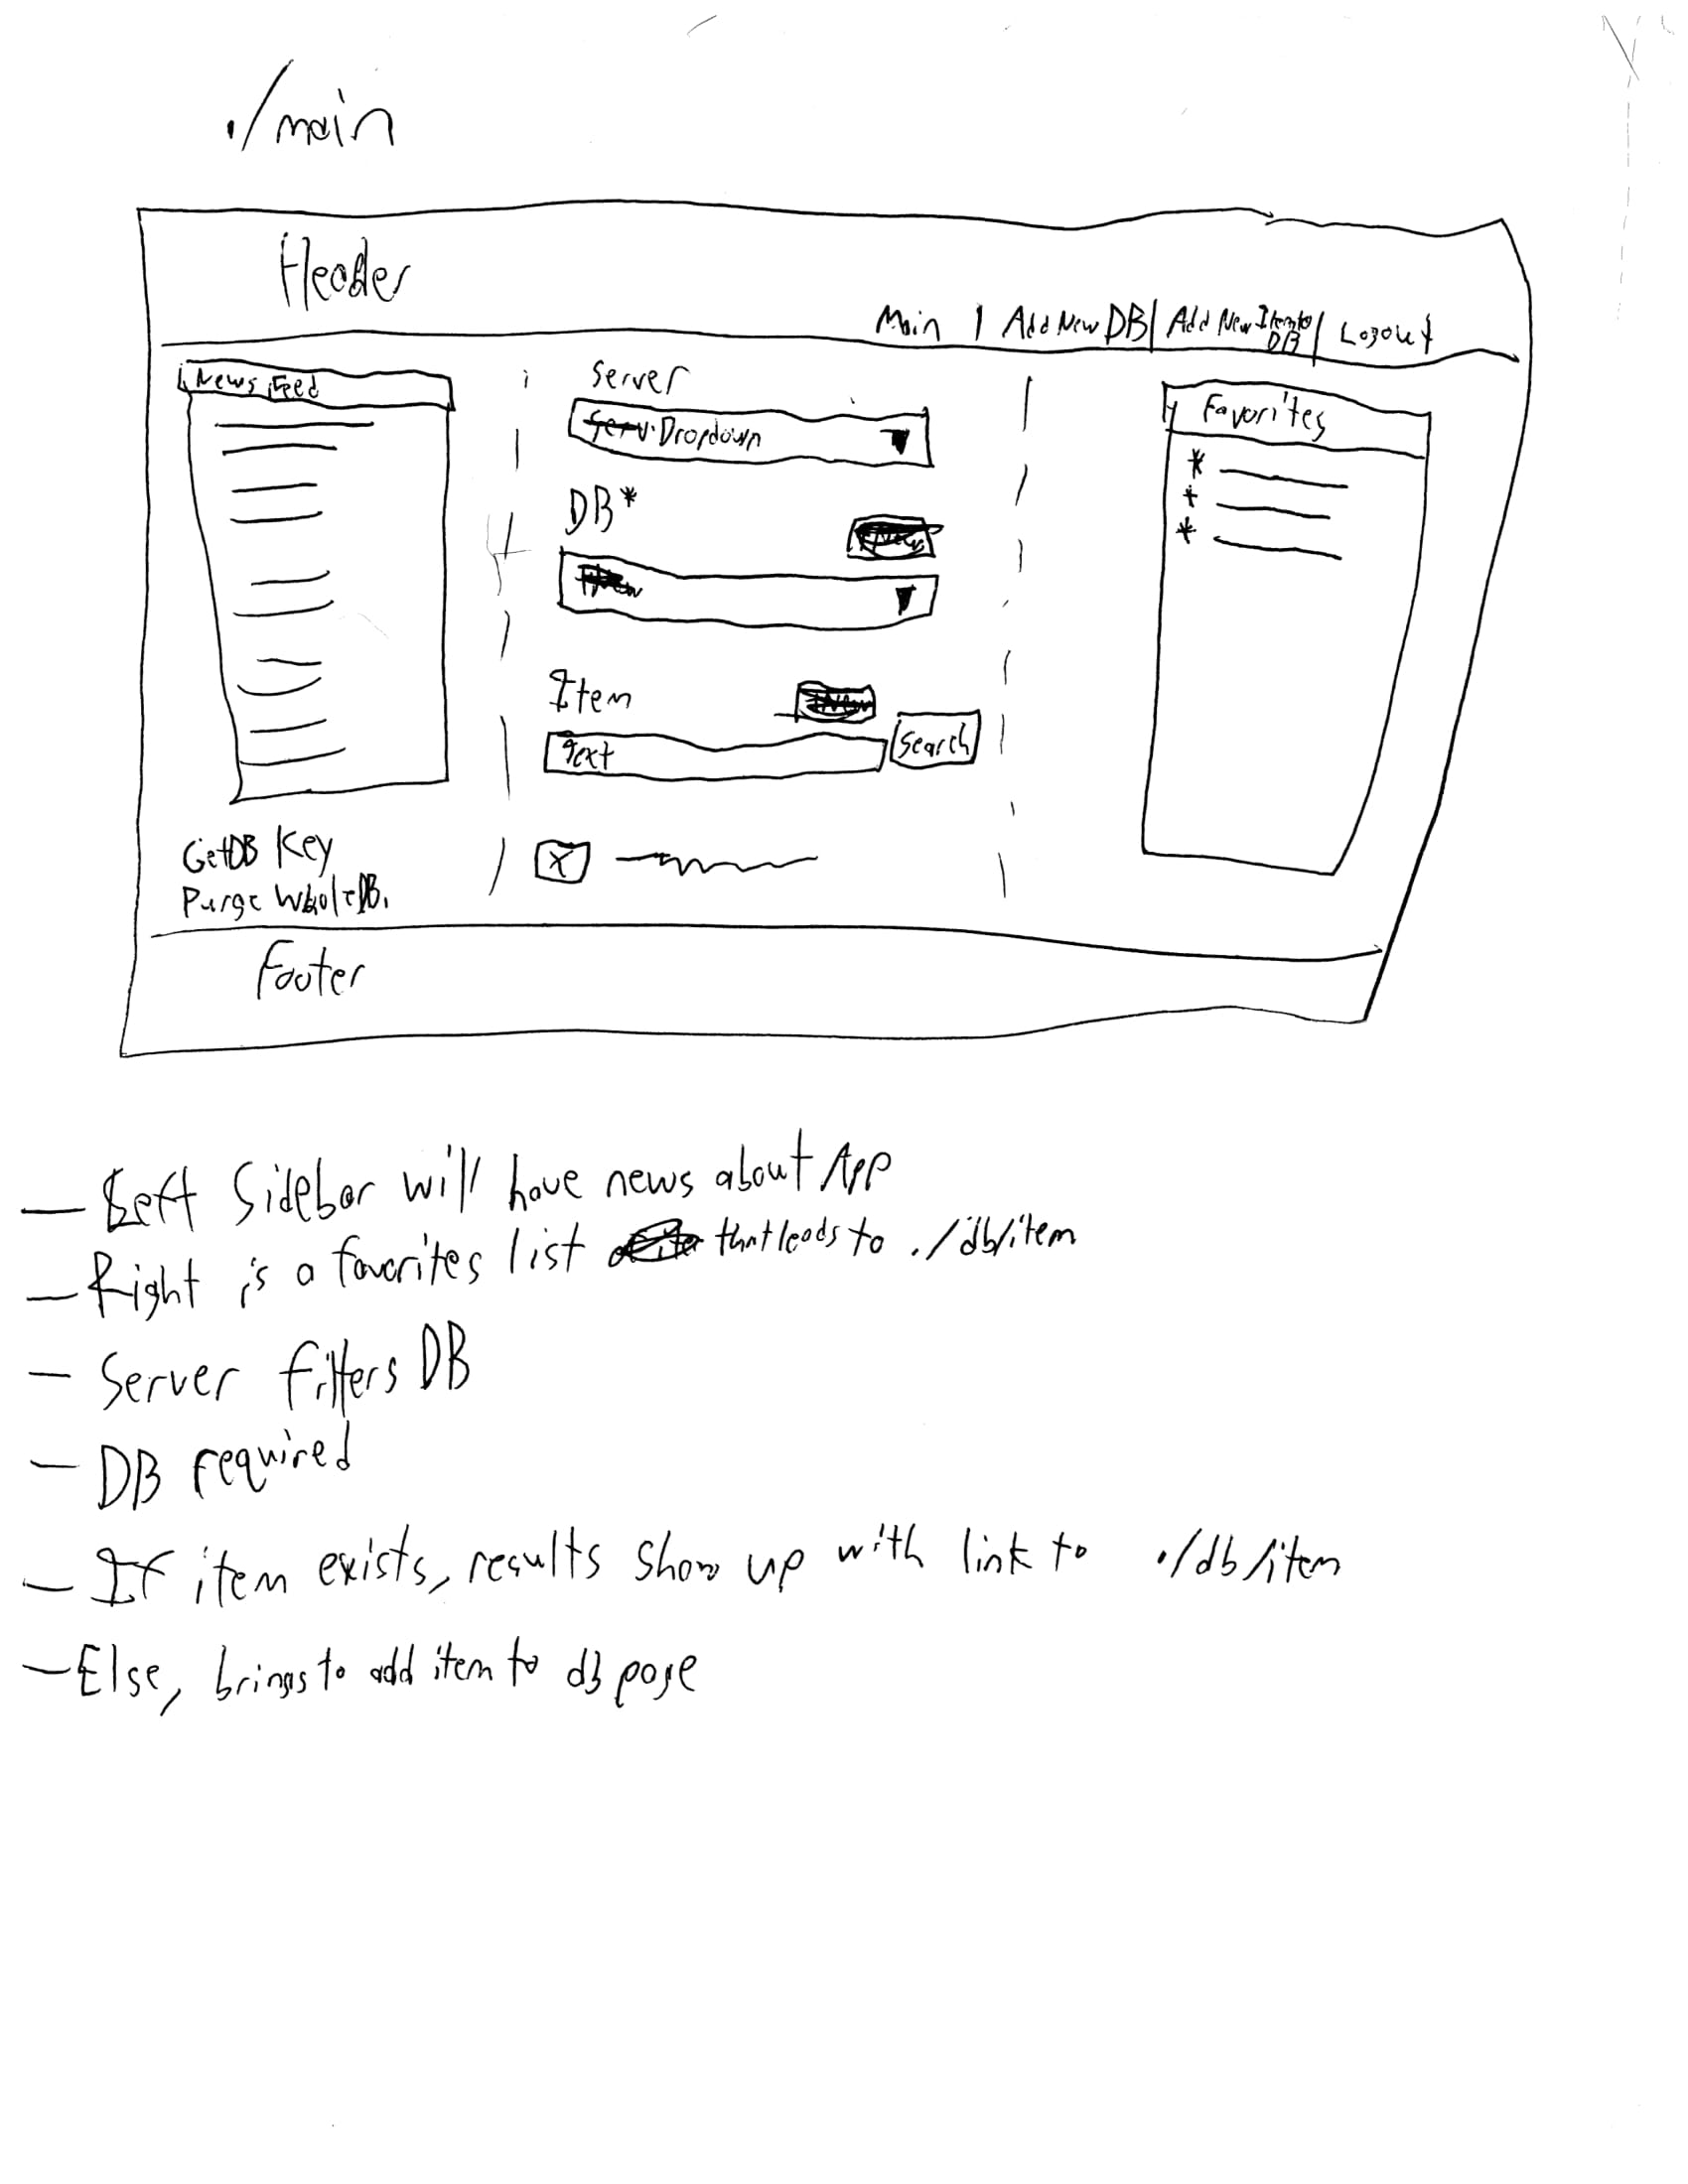 ./main
Header
Main | Add New DB | Add New Item to DB | Logout
News Feed
Server
Dropdown
DB*
Item
Text
Search
X
Get DB Key
Purge Whole DB.
Favorites
*
*
*
Footer
- Left Sidebar will have news about App
- Right is a favorites list that leads to ./db/item
- Server filters DB
- DB required
- If item exists, results show up with link to ./db/item
- Else, brings to add item to db page